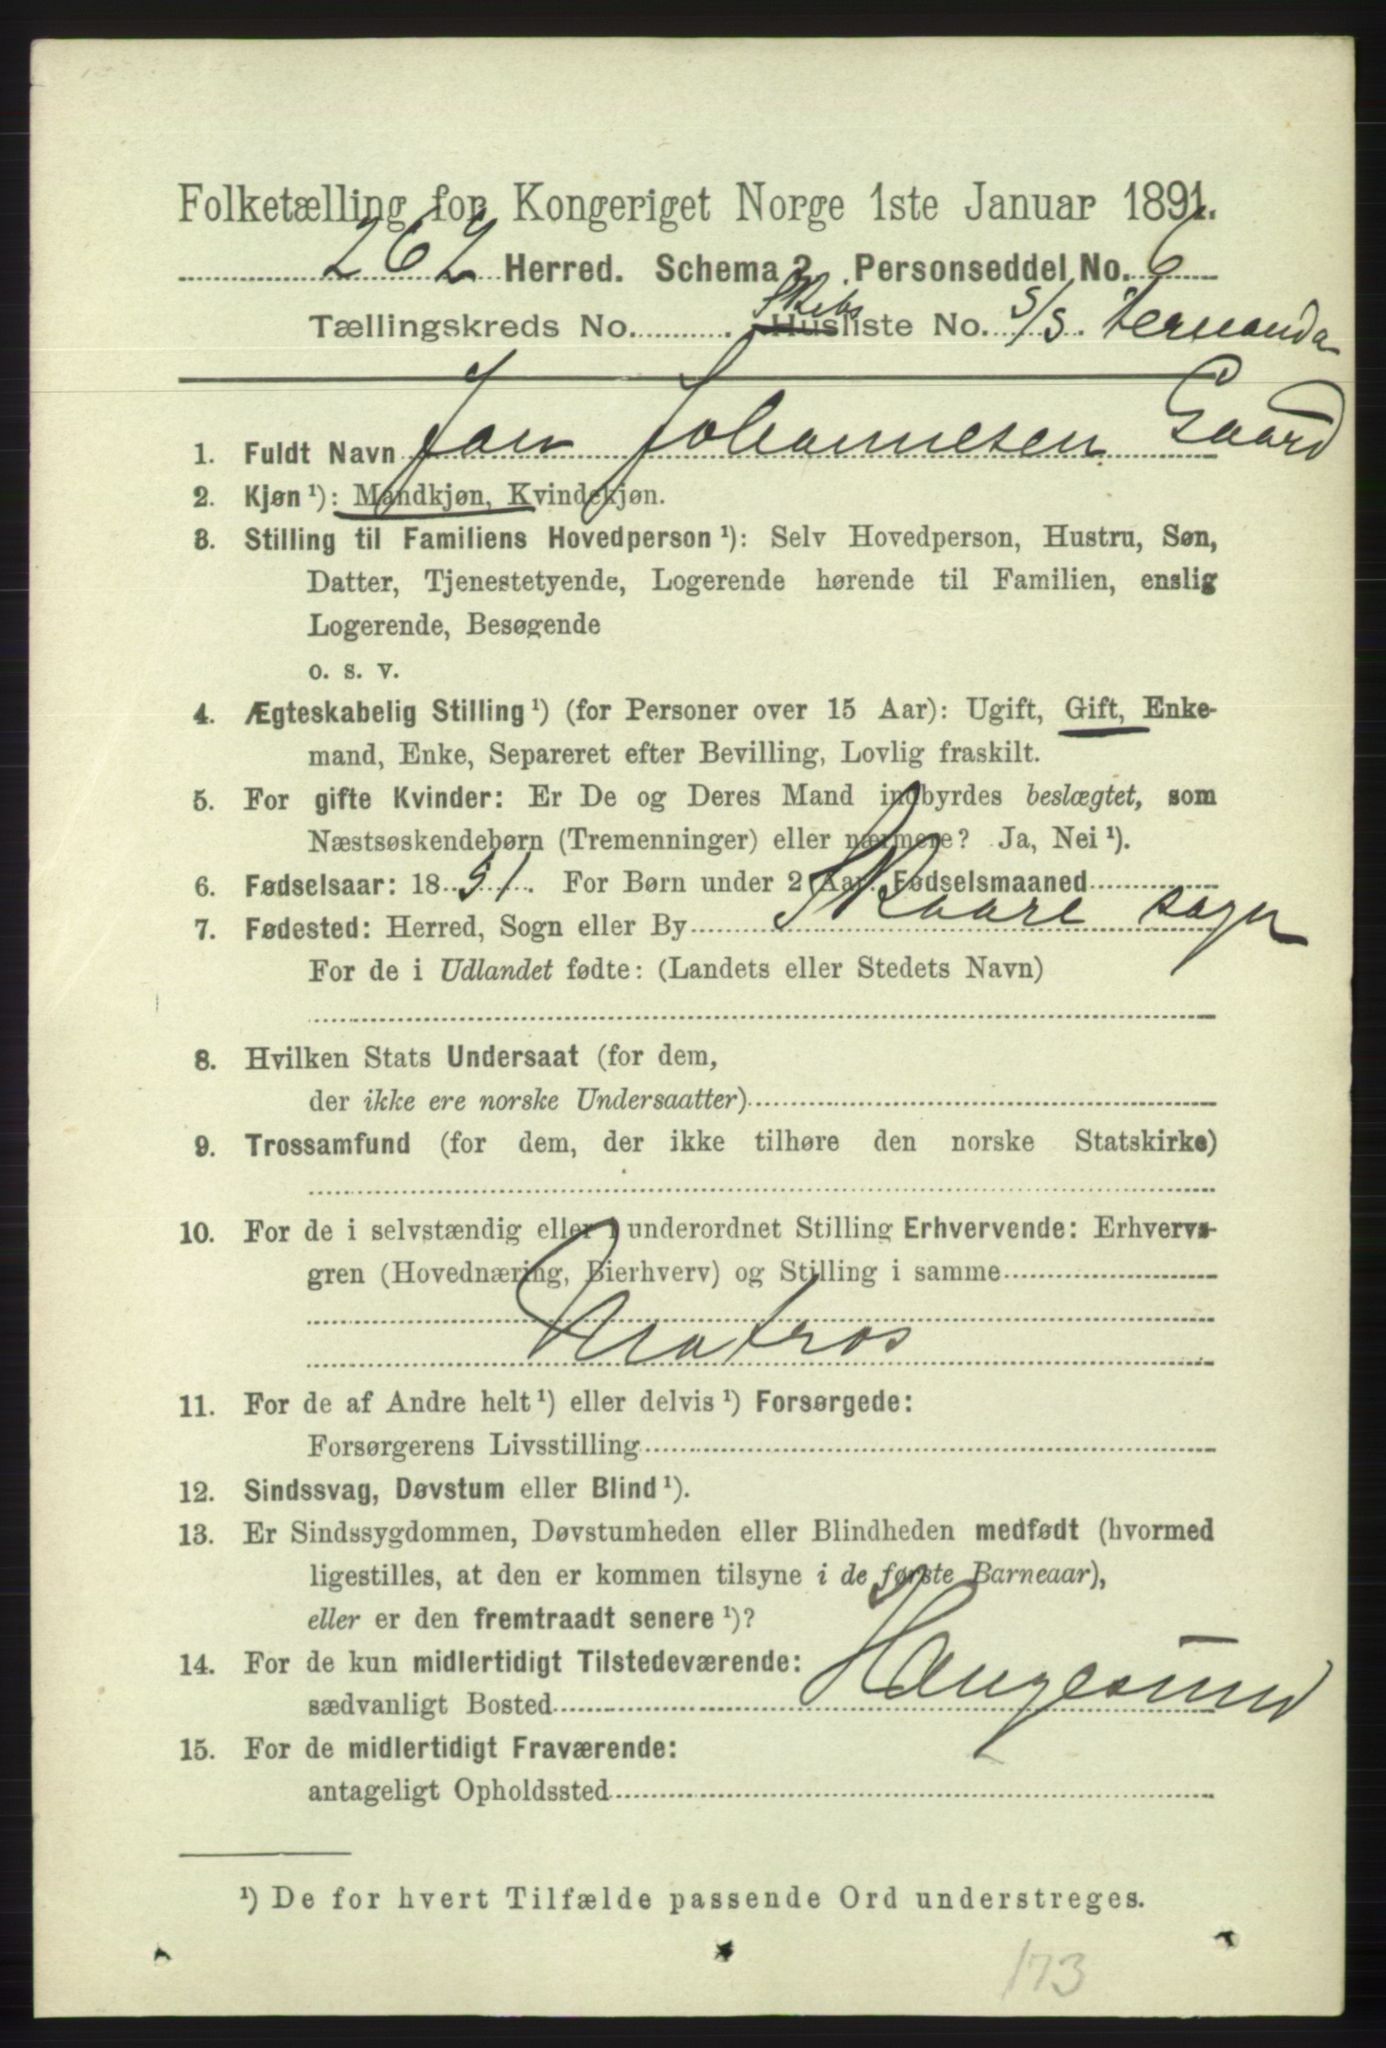 Folketælling for Kongeriget Norge 1ste Januar 1891.
262 Herred. Schema 2. Personseddel No. 6
Skibs
Tællingskreds No. . Husliste No. S/S.
1. Fuldt Navn Jan Johannesen Gaard
2. Kjøn ¹): Mandkjøn, Kvindekjøn.
3. Stilling til Familiens Hovedperson ¹): Selv Hovedperson, Hustru, Søn,
Datter, Tjenestetyende, Logerende hørende til Familien, enslig
Logerende, Besøgende
o. s. v.
4. Ægteskabelig Stilling ¹) (for Personer over 15 Aar): Ugift, Gift, Enke-
mand, Enke, Separeret efter Bevilling, Lovlig fraskilt.
5. For gifte Kvinder: Er De og Deres Mand indbyrdes beslægtet, som
Næstsøskendebørn (Tremenninger) eller nærmere? Ja, Nei ¹).
6. Fødselsaar: 1851. For Børn under 2 Aar: Fødselsmaaned
7. Fødested: Herred, Sogn eller By Skaare sogn
For de i Udlandet fødte: (Landets eller Stedets Navn)
8. Hvilken Stats Undersaat (for dem,
der ikke ere norske Undersaatter)
9. Trossamfund (for dem, der ikke tilhøre den norske Statskirke)
10. For de i selvstændig eller i underordnet Stilling Erhvervende: Erhvervs-
gren (Hovednæring, Bierhverv) og Stilling i samme
Matros
11. For de af Andre helt ¹) eller delvis ¹) Forsørgede:
Forsørgerens Livsstilling
12. Sindssvag, Døvstum eller Blind ¹).
13. Er Sindssygdommen, Døvstumheden eller Blindheden medfødt (hvormed
ligestilles, at den er kommen tilsyne i de første Barneaar),
eller er den fremtraadt senere ¹)?
14. For de kun midlertidigt Tilstedeværende:
sædvanligt Bosted Haugesund
15. For de midlertidigt Fraværende:
antageligt Opholdssted
¹) De for hvert Tilfælde passende Ord understreges.
173